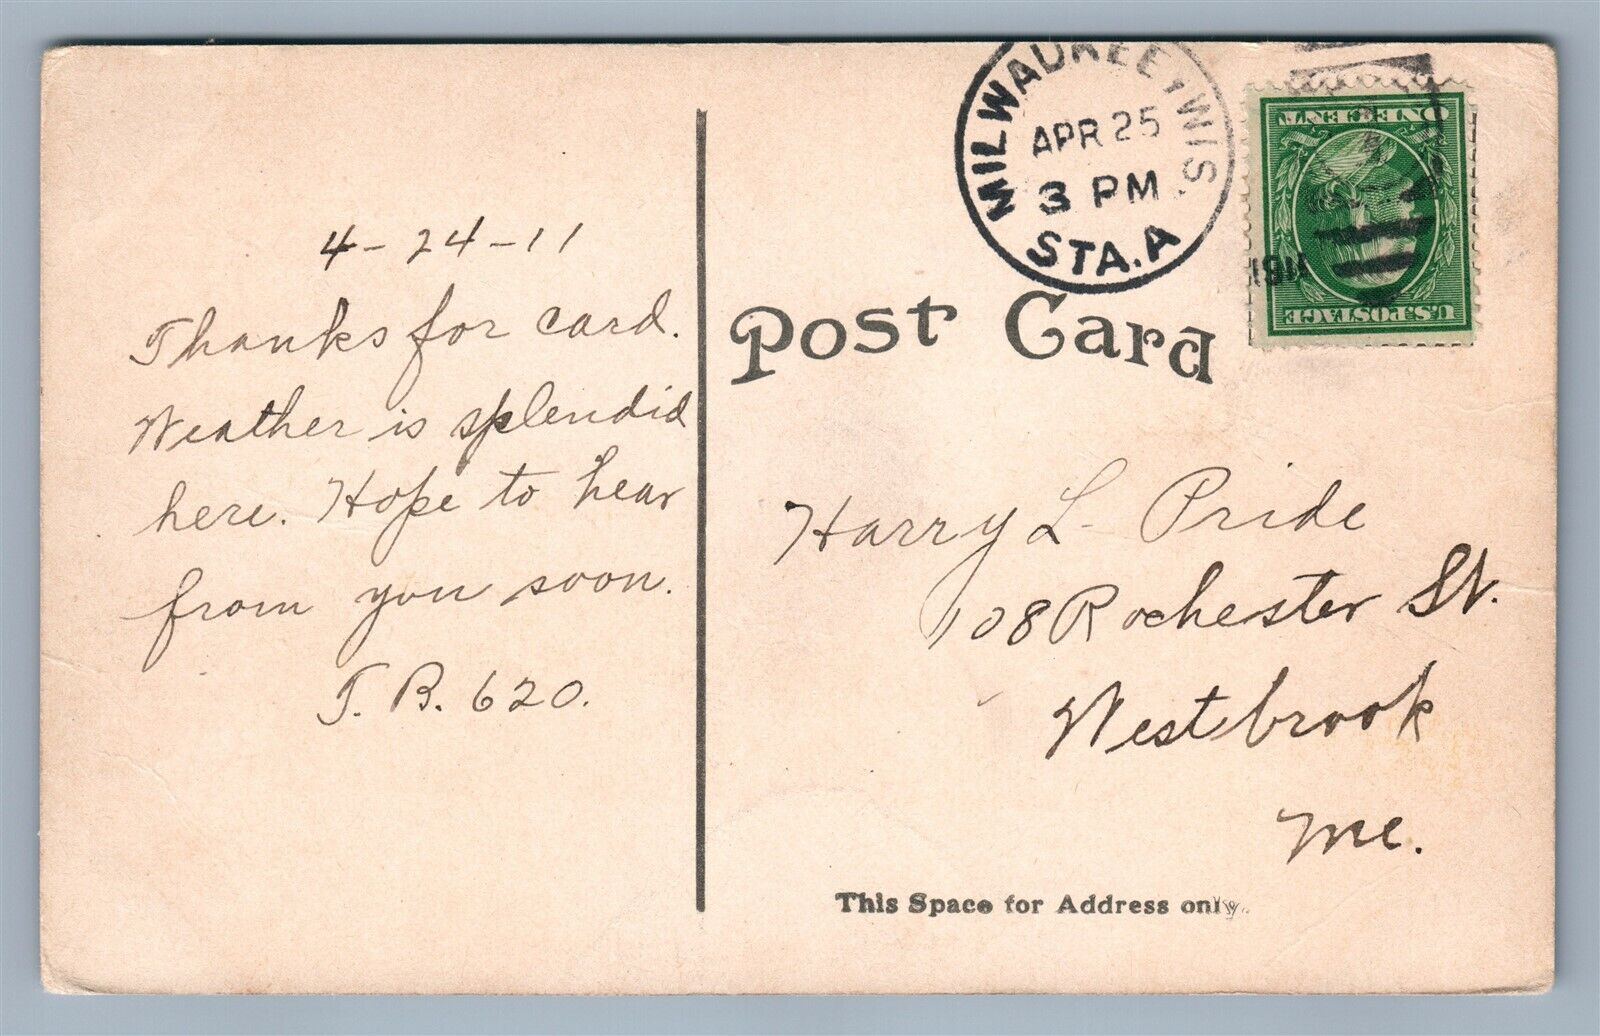 4-24-11
Thanks for card.
Weather is splendid
here. Hope to hear
from you soon.
T. B. 620.
MILWAUKEE, WIS.
APR 25
3 PM
STA. A
1911
ONE CENT
U.S. POSTAGE
Post Card
Harry L. Pride
108 Rochester St.
Westbrook
Me.
This Space for Address only.